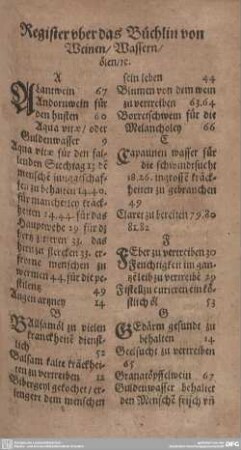 Register vber das Büchlin von
Weinen/ Wassern/
ölen/ꝛc.
A
Alantwein 67
Andornwein für
den husten 60
Aqua vitæ/ oder
Guldenwasser 9
Aqua vitæ für den fal-
lenden Siechtag
zu behalten 14.40.
für mancherley kräck-
heiten 14.44. für das
Hauptwehe 29 für dz
hertz 33. das
hertz zu stercken 33. er-
frorne menschen zu
wermen 44. für die pe-
stilentz 49
Augen artzney 24
B
Balsamöl zu vielen
kranckheitē dienst-
lich 52
Balsam kalte kräckhei-
ten zu vertreiben 12
Bibergeyl gekochet/ er-
lengert dem menschen
sein leben 44
Blumen von dem wein
zu vertreiben 63.64
Borretschwein für die
Melancholey 66
C
Capaunen wasser für
die schwindsucht
18.26. in grossē kräck-
heiten zu gebrauchen
49
Claret zu bereiten 79.80
81.82
F
Feber zu vertreiben 30
Feuchtigkeit im gan-
tzē leib zu vertreibē 29
Fistel zu curieren ein kö-
stlich öl 53
G
Gedärm gesunde zu
behalten 14
Geelsucht zu vertreiben
65
Granatöpffelwein 67
Guldenwasser behaltet
den Menschē frisch vñ